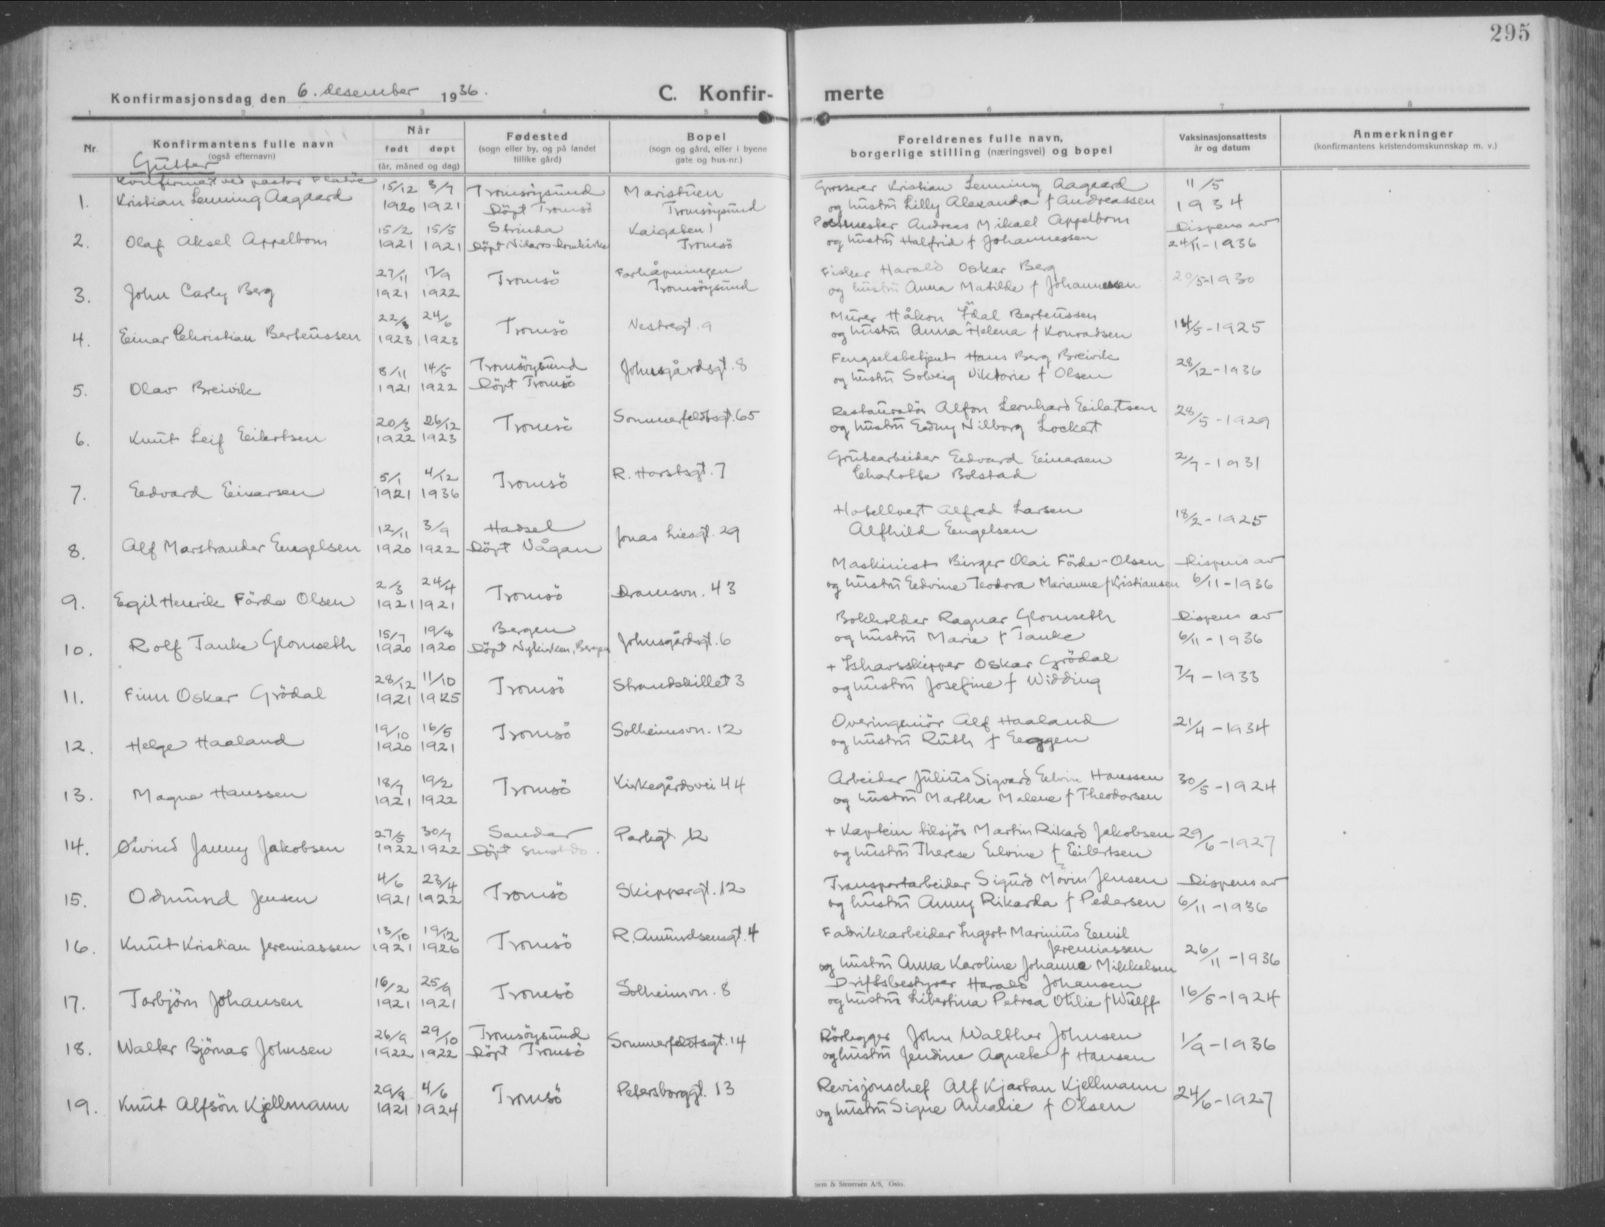 295
Konfirmasjonsdag den 6. desember 1936.
C. Konfir-
merte
1 2 3 4 5 6 7 8
Nr.
Konfirmantens fulle navn
(også efternavn)
Når
født døpt
(år, måned og dag)
Fødested
(sogn eller by, og på landet
tillike gård)
Bopel
(sogn og gård, eller i byene
gate og hus-nr.)
Foreldrenes fulle navn,
borgerlige stilling (næringsvei) og bopel
Vaksinasjonsattests
år og datum
Anmerkninger
(konfirmantens kristendomskunnskap m. v.)
Gutter
Konfirmert ved pastor
1. Kristian Lenning Aagaard 15/12 1920 3/7 1921 Tromsöysund Döpt Tromsö Maristuen Tromsöysund
Grosserer Kristian Lenning Aagaard
og hustru Lilly Alexandra f Andreassen
11/5 1934
2. Olaf Aksel Appelbom 15/2 1921 15/5 1921 Strinda Döpt Nidaros domkirke Kaigaten 1 Tromsö
Postmester Andreas Mikael Appelbom
og hustru Halfrid f Johannessen
Dispens av 24/11-1936
3. John Carly Berg 27/11 1921 17/9 1922 Tromsö Forhåpningen Tromsöysund
Fisker Harald Oskar Berg
og hustru Anna Matilde f Johannessen
20/5-1930
4. Einar Christian Berteussen 22/3 1923 24/6 1923 Tromsö Nestregt. 9
Murer Håkon Idal Berteussen
og hustru Anna Helena f Konradsen
14/5-1925
5. Olav Breivik 8/11 1921 14/5 1922 Tromsöysund Döpt Tromsö Johnsgårdsgt. 8
Fengselsbetjent Hans Berg Breivik
og hustru Solveig Viktorie f Olsen
28/12-1936
6. Knut Leif Eilertsen 20/3 1922 26/12 1923 Tromsö Sommerfeldtsgt. 65
Restauratör Alfon Leonhard Eilertsen
og hustru Edny Nilborg Lockert
28/5-1929
7. Edvard Einarsen 5/1 1921 4/12 1936 Tromsö R. Horstsgt. 7
Grubearbeider Edvard Einarsen
Charlotte Bolstad
2/7-1931
8. Alf Marstrander Engelsen 12/11 1920 3/9 1922 Hadsel Döpt Vågan Jonas Liesgt. 29
Hotellvert Alfred Larsen
Alfhild Engelsen
18/2-1925
9. Egil Henrik Förde Olsen 2/3 1921 24/4 1921 Tromsö Dramsvn. 43
Maskinist Birger Olai Förde-Olsen
og hustru Edvine Teodora Marianne f Kristiansen
Dispens av 6/11-1936
10. Rolf Tanke Glomseth 15/7 1920 19/8 1920 Bergen Döpt Nykirken, Bergen Johnsgårdsgt. 6
Bokholder Ragnar Glomseth
og hustru Marie f Tanke
Dispens av 6/11-1936
11. Finn Oskar Grödal 28/12 1921 11/10 1925 Tromsö Strandskillet 3
+ Ishavsskipper Oskar Grödal
og hustru Josefine f Widding
7/9-1933
12. Helge Haaland 19/10 1920 16/5 1921 Tromsö Solheimsvn. 12
Overingeniör Alf Haaland
og hustru Ruth f Eeggen
21/4-1934
13. Magne Hanssen 18/9 1921 19/2 1922 Tromsö Kirkegårdsvei 44
Arbeider Julius Sigvard Edvin Hanssen
og hustru Martha Malene f Theodorsen
30/5-1924
14. Øivind Jenny Jakobsen 27/5 1922 30/7 1922 Sandar Döpt Parkgt 12
+ Kaptein tilsjös Martin Rikard Jakobsen
og hustru Therese Edvine f Eilertsen
29/6-1927
15. Odmund Jensen 4/6 1921 23/4 1922 Tromsö Skippergt. 12
Transportarbeider Sigurd Mövin Jensen
og hustru Anny Rikarda f Pedersen
Dispens av 6/11-1936
16. Knut Kristian Jeremiassen 13/10 1921 19/12 1926 Tromsö R. Amundsensgt. 4
Fabrikkarbeider Ingert Marinius Emil
Jeremiassen
og hustru Anna Karoline Johanne Mikkelsen
26/11-1936
17. Torbjörn Johansen 16/2 1921 25/9 1921 Tromsö Solheimvn. 8
Driftsbestyrer Harald Johansen
og hustru Libertina Petrea Otilie f Wulff
16/5-1924
18. Walter Björnar Johnsen 26/9 1922 29/10 1922 Tromsöysund Döpt Tromsö Sommerfeldtsgt. 14
Rörlegger John Walther Johnsen
og hustru Jendine Agnete f Hansen
1/9-1936
19. Knut Alfsön Kjellmann 29/8 1921 4/6 1924 Tromsö Petersborggt. 13
Revisjonschef Alf Kjartan Kjellmann
og hustru Signe Amalie f Olsen
24/6-1927
& Stenersen A/S, Oslo.